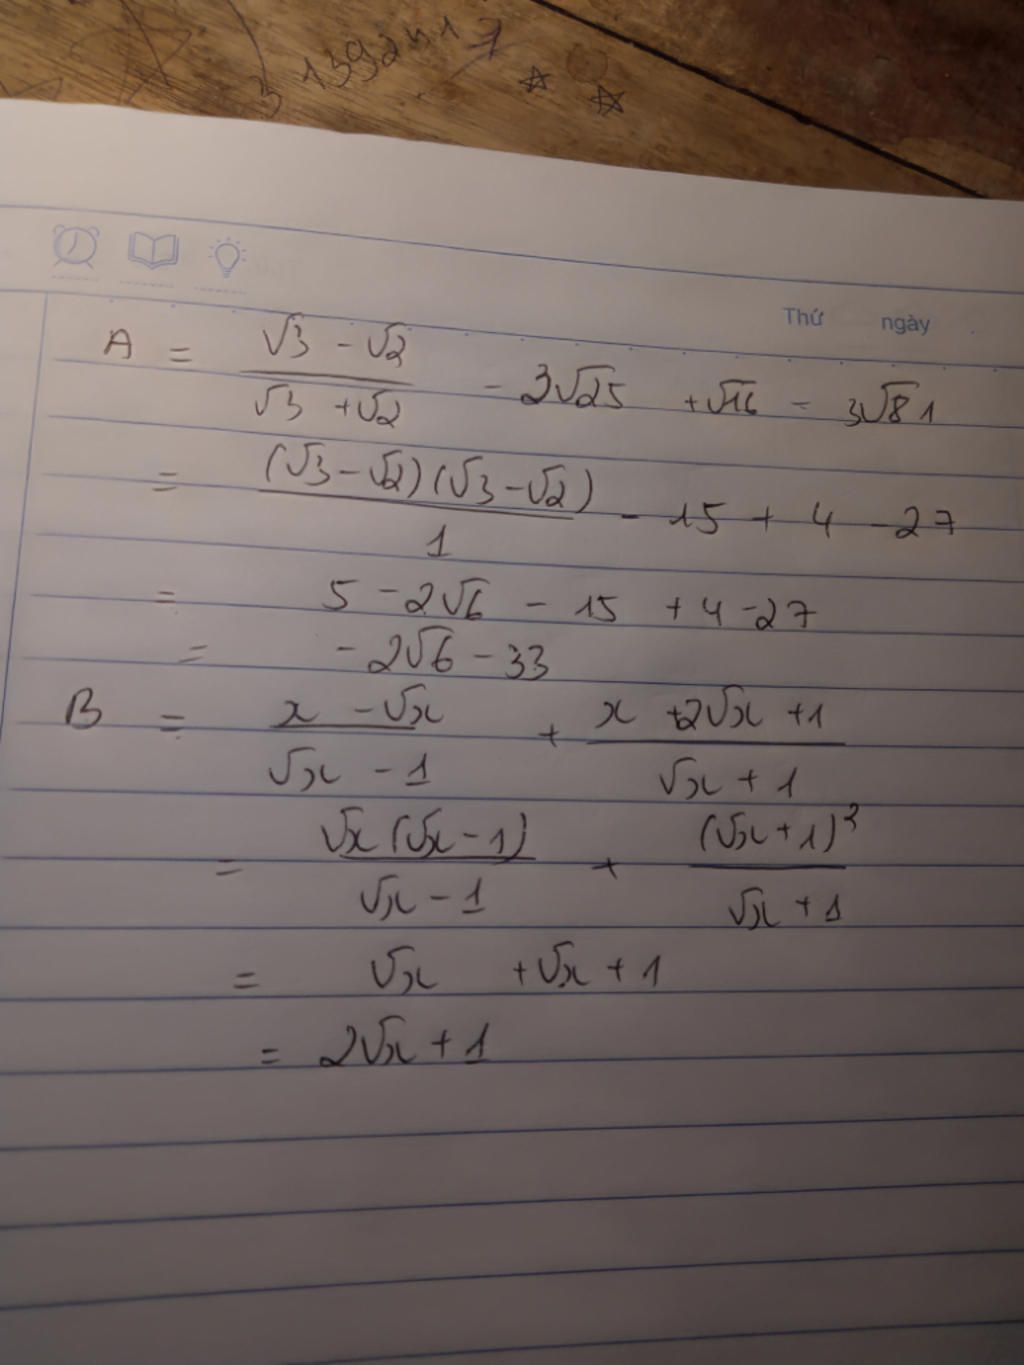 1392417
Thứ ngày
A = (√3 - √2)/(√3 + √2) - 3√25 + √16 - 3√81
= (√3 - √2)(√3 - √2)/1 - 15 + 4 - 27
= 5 - 2√6 - 15 + 4 - 27
= - 2√6 - 33
B = (x - √x)/(√x - 1) + (x + 2√x + 1)/(√x + 1)
= √x(√x - 1)/(√x - 1) + (√x + 1)²/(√x + 1)
= √x + √x + 1
= 2√x + 1